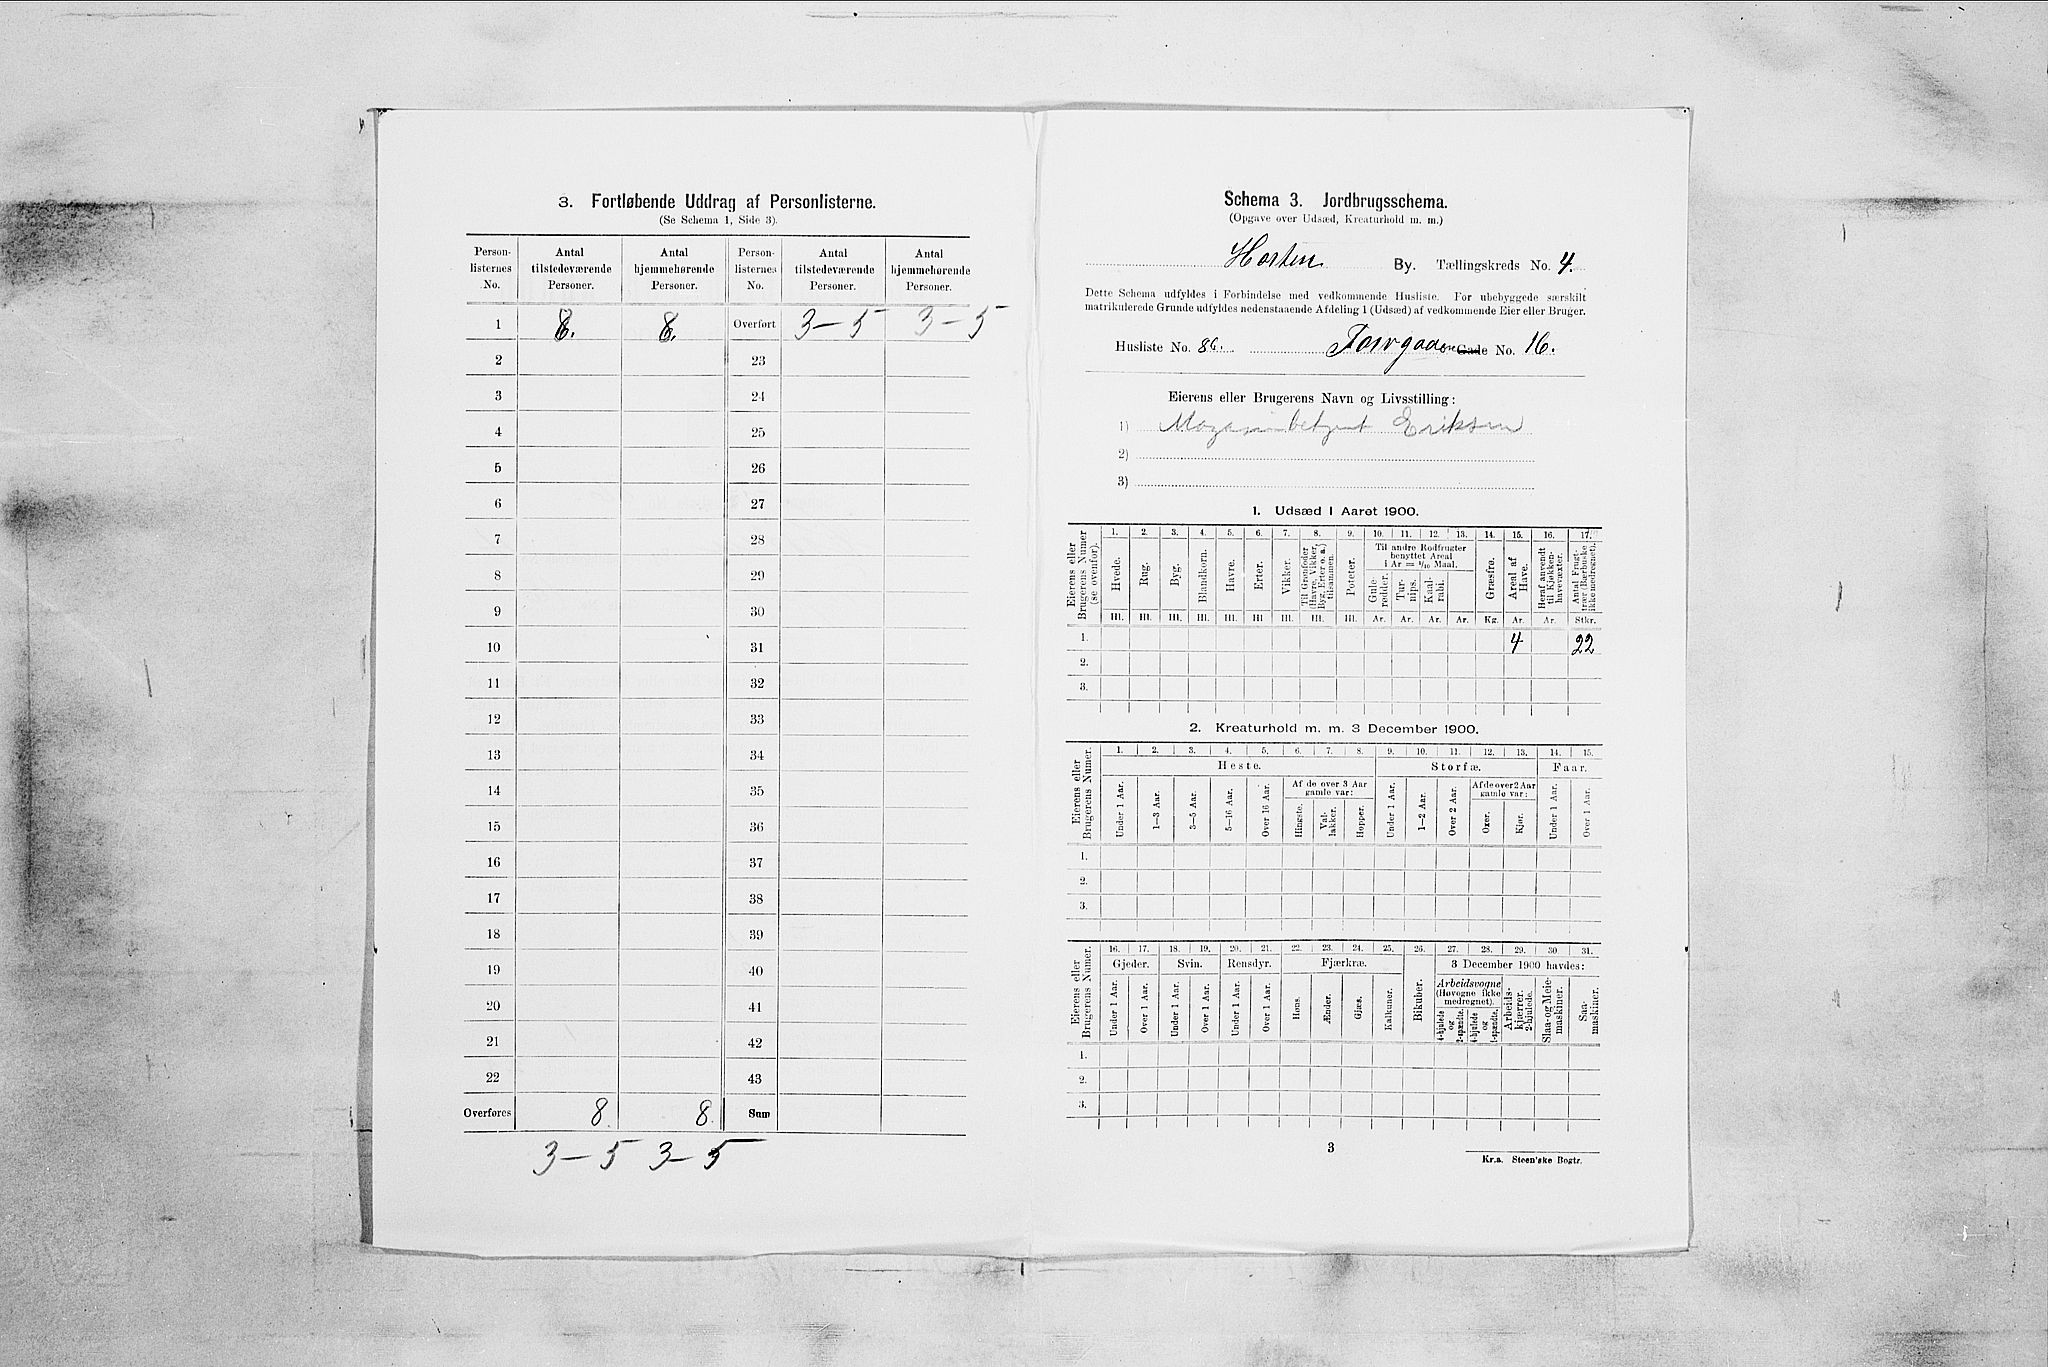 3. Fortløbende Uddrag af Personlisterne.
(Se Schema 1, Side 3).
Person-listernes No. | Antal tilstedeværende Personer. | Antal hjemmehørende Personer. | Person-listernes No. | Antal tilstedeværende Personer. | Antal hjemmehørende Personer.
1 8. 8. Overført 3-5 3-5
2 23
3 24
4 25
5 26
6 27
7 28
8 29
9 30
10 31
11 32
12 33
13 34
14 35
15 36
16 37
17 38
18 39
19 40
20 41
21 42
22 43
Overføres 8. 8. Sum
3-5 3-5
Schema 3. Jordbrugsschema.
(Opgave over Udsæd, Kreaturhold m. m.)
Horten By. Tællingskreds No. 4.
Dette Schema udfyldes i Forbindelse med vedkommende Husliste. For ubebyggede særskilt
matrikulerede Grunde udfyldes nedenstaaende Afdeling 1 (Udsæd) af vedkommende Eier eller Bruger.
Husliste No. 86. Torvgaden Gade No. 16.
Eierens eller Brugerens Navn og Livsstilling:
1) Magasinbetjent Eriksen
2)
3)
1. Udsæd i Aaret 1900.
Eierens eller Brugerens Numer (se ovenfor).
1. 2. 3. 4. 5. 6. 7. 8. 9. 10. 11. 12. 13. 14. 15. 16. 17.
Til andre Rodfrugter benyttet Areal i Ar = 1/10 Maal.
Hvede. Rug. Byg. Blandkorn. Havre. Erter. Vikker. Til Grønfoder (Havre, Vikker, Byg, Erter o. a.) tilsammen. Poteter. Gule-rødder. Tur-nips. Kaal-rabi. Græsfrø. Areal af Have. Heraf anvendt til Kjøkken-havevæxter. Antal Frugt-trær (Bærbuske ikke medregnet).
Hl. Hl. Hl. Hl. Hl. Hl. Hl. Hl. Hl. Ar. Ar. Ar. Ar. Kg. Ar. Ar. Stkr.
1. 4 22
2.
3.
2. Kreaturhold m. m. 3 December 1900.
Eierens eller Brugerens Numer.
1. 2. 3. 4. 5. 6. 7. 8. 9. 10. 11. 12. 13. 14. 15.
Heste. Storfæ. Faar.
Af de over 3 Aar gamle var: Af de over 2 Aar gamle var:
Under 1 Aar. 1—3 Aar. 3—5 Aar. 5—16 Aar. Over 16 Aar. Hingste. Val-lakker. Hopper. Under 1 Aar. 1—2 Aar. Over 2 Aar. Oxer. Kjør. Under 1 Aar. Over 1 Aar.
1.
2.
3.
Eierens eller Brugerens Numer.
16. 17. 18. 19. 20. 21. 22. 23. 24. 25. 26. 27. 28. 29. 30. 31.
Gjeder. Svin. Rensdyr. Fjærkræ. 3 December 1900 havdes:
Arbeidsvogne (Høvogne ikke medregnet).
Under 1 Aar. Over 1 Aar. Under 1 Aar. Over 1 Aar. Under 1 Aar. Over 1 Aar. Høns. Ænder. Gjæs. Kalkuner. Bikuber. 4-hjulede og 2-spændte. 4-hjulede og 1-spændte. Arbeids-kjærrer. 2-hjulede. Slaa- og Meie-maskiner. Saa-maskiner.
1.
2.
3.
3
Kr.a. Steen'ske Bogtr.